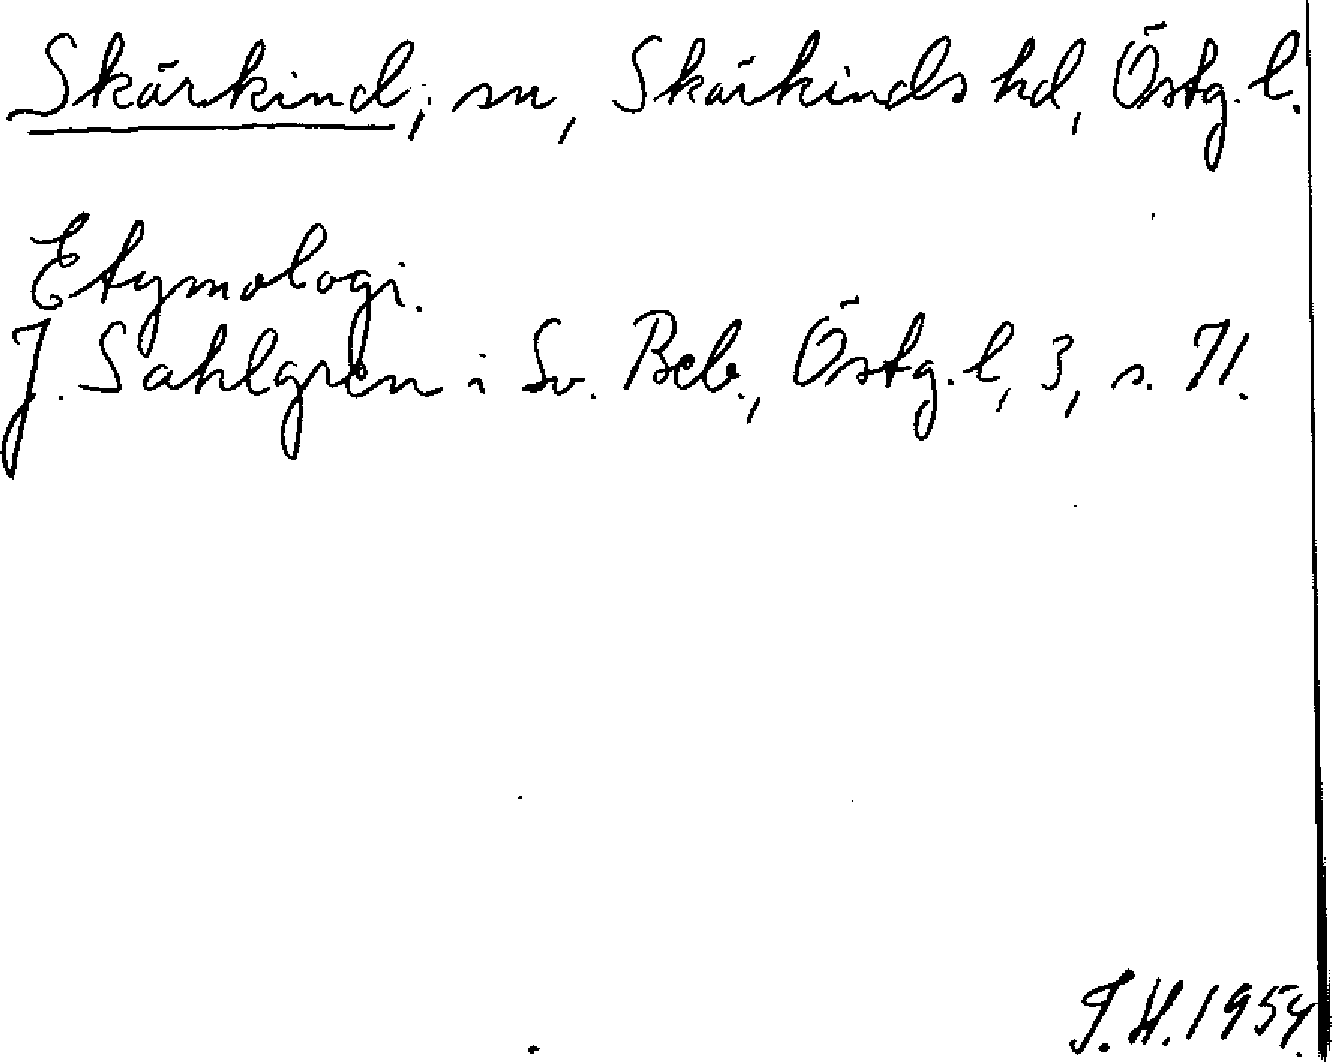 Skärkind; sn, Skärkinds hd, Östg. l.
Etymologi.
J. Sahlgren i Sv. Beb., Östg. l, 3, s. 71.
J. H. 1954.